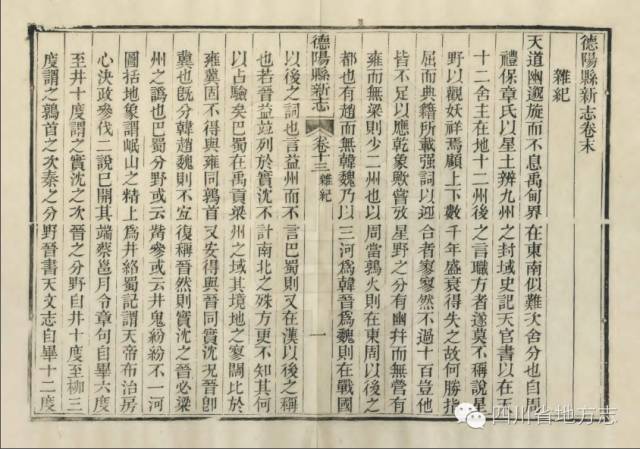 德陽縣新志卷末
雜紀
天道幽遐旋而不息禹甸界在東南似難次舍分也自周
禮保章氏以星土辨九州之封域史記天官書以在天
十二舍主在地十二州後之言職方者遂莫不稱說星
野以觀妖祥焉顧上下數千年盛衰得失之故何勝指
屈而典籍所載强詞以迎合者寥寥然不過十百豈他
皆不足以應乾象歟嘗攷星野之分有幽并而無營有
雍而無梁則少二州也以周當鶉火則在東周以後之
都也有趙而無韓魏乃以三河爲韓晉爲魏則在戰國
德陽縣新志
卷十三
雜紀
一
以後之詞也言益州而不言巴蜀則又在漢以後之稱
也若晉益竝列於實沈不計南北之殊方更不知其何
以占驗矣巴蜀在禹貢梁州之域其境地之寥闊比於
雍冀固不得與雍同鶉首又安得與晉同實沈況晉卽
冀也旣分韓趙魏則不宜復稱晉然則實沈之晉必梁
州之譌也巴蜀分野或云觜參或云井鬼紛紛不一河
圖括地象謂岷山之精上爲井絡蜀記謂天帝布治房
心決政參伐二說已開其端蔡邕月令章句自畢六度
至井十度謂之實沈之次晉之分野自井十度至柳三
度謂之鶉首之次秦之分野晉書天文志自畢十二度
四川省地方志